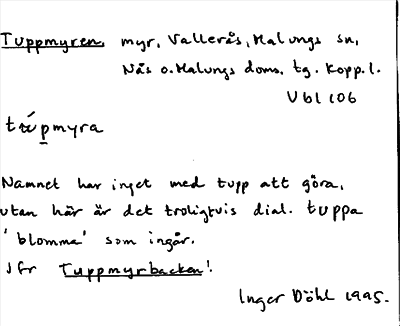 Tuppmyren, myr, Vallerås, Malungs sn,
Nås o. Malungs doms. tg. Kopp. l.
Ubl 106
tú̀pmyra
Namnet har inget med tupp att göra,
utan här är det troligtvis dial. tuppa
'blomma' som ingår.
Jfr Tuppmyrbacken!
Inger Döhl 1995.